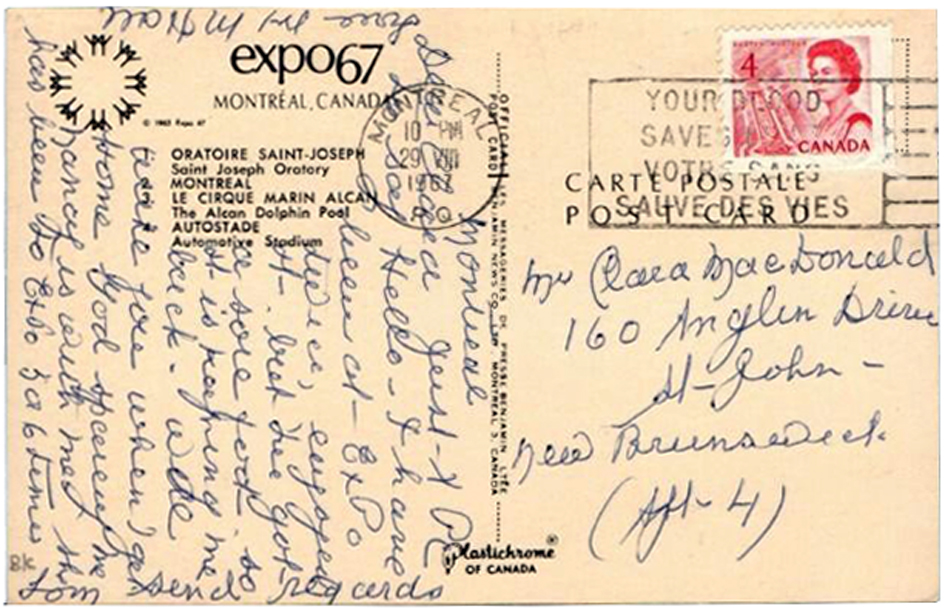 expo67
MONTRÉAL, CANADA
© 1963 Expo 67
ORATOIRE SAINT-JOSEPH
Saint Joseph Oratory
MONTREAL
LE CIRQUE MARIN ALCAN
The Alcan Dolphin Pool
AUTOSTADE
Automotive Stadium
MONTREAL
10 PM
29 VIII
1967
P.Q.
YOUR BLOOD
SAVES
VOTRE SANG
SAUVE DES VIES
4
CANADA
CARTE POSTALE
POST CARD
Montreal
Dear Clara Just a PC
to say Hello - I have
been at - Expo
twice, enjoyed
it. but have got
a sore foot. so
it is keeping me
back. will
write you when I get
Home Good spencey
Nancy is with me them
has been to Expo 5 a 6 times
Tom send regards
Mrs Clara MacDonald
160 Anglin Drive
St-John -
New Brunswick.
(Apt- 4)
OFFICIAL
POST CARD
LES MESSAGERIES DE PRESSE BENJAMIN LTÉE
BENJAMIN NEWS CO. MONTREAL 3, CANADA
Plastichrome®
OF CANADA
BK